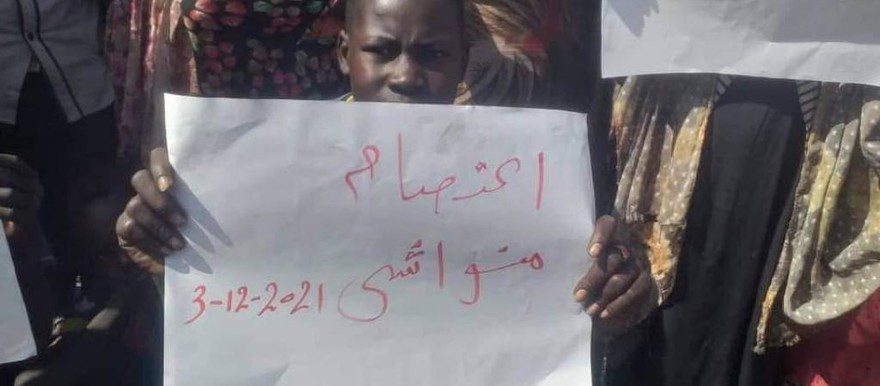 اعتصام
منواشي 3-12-2021